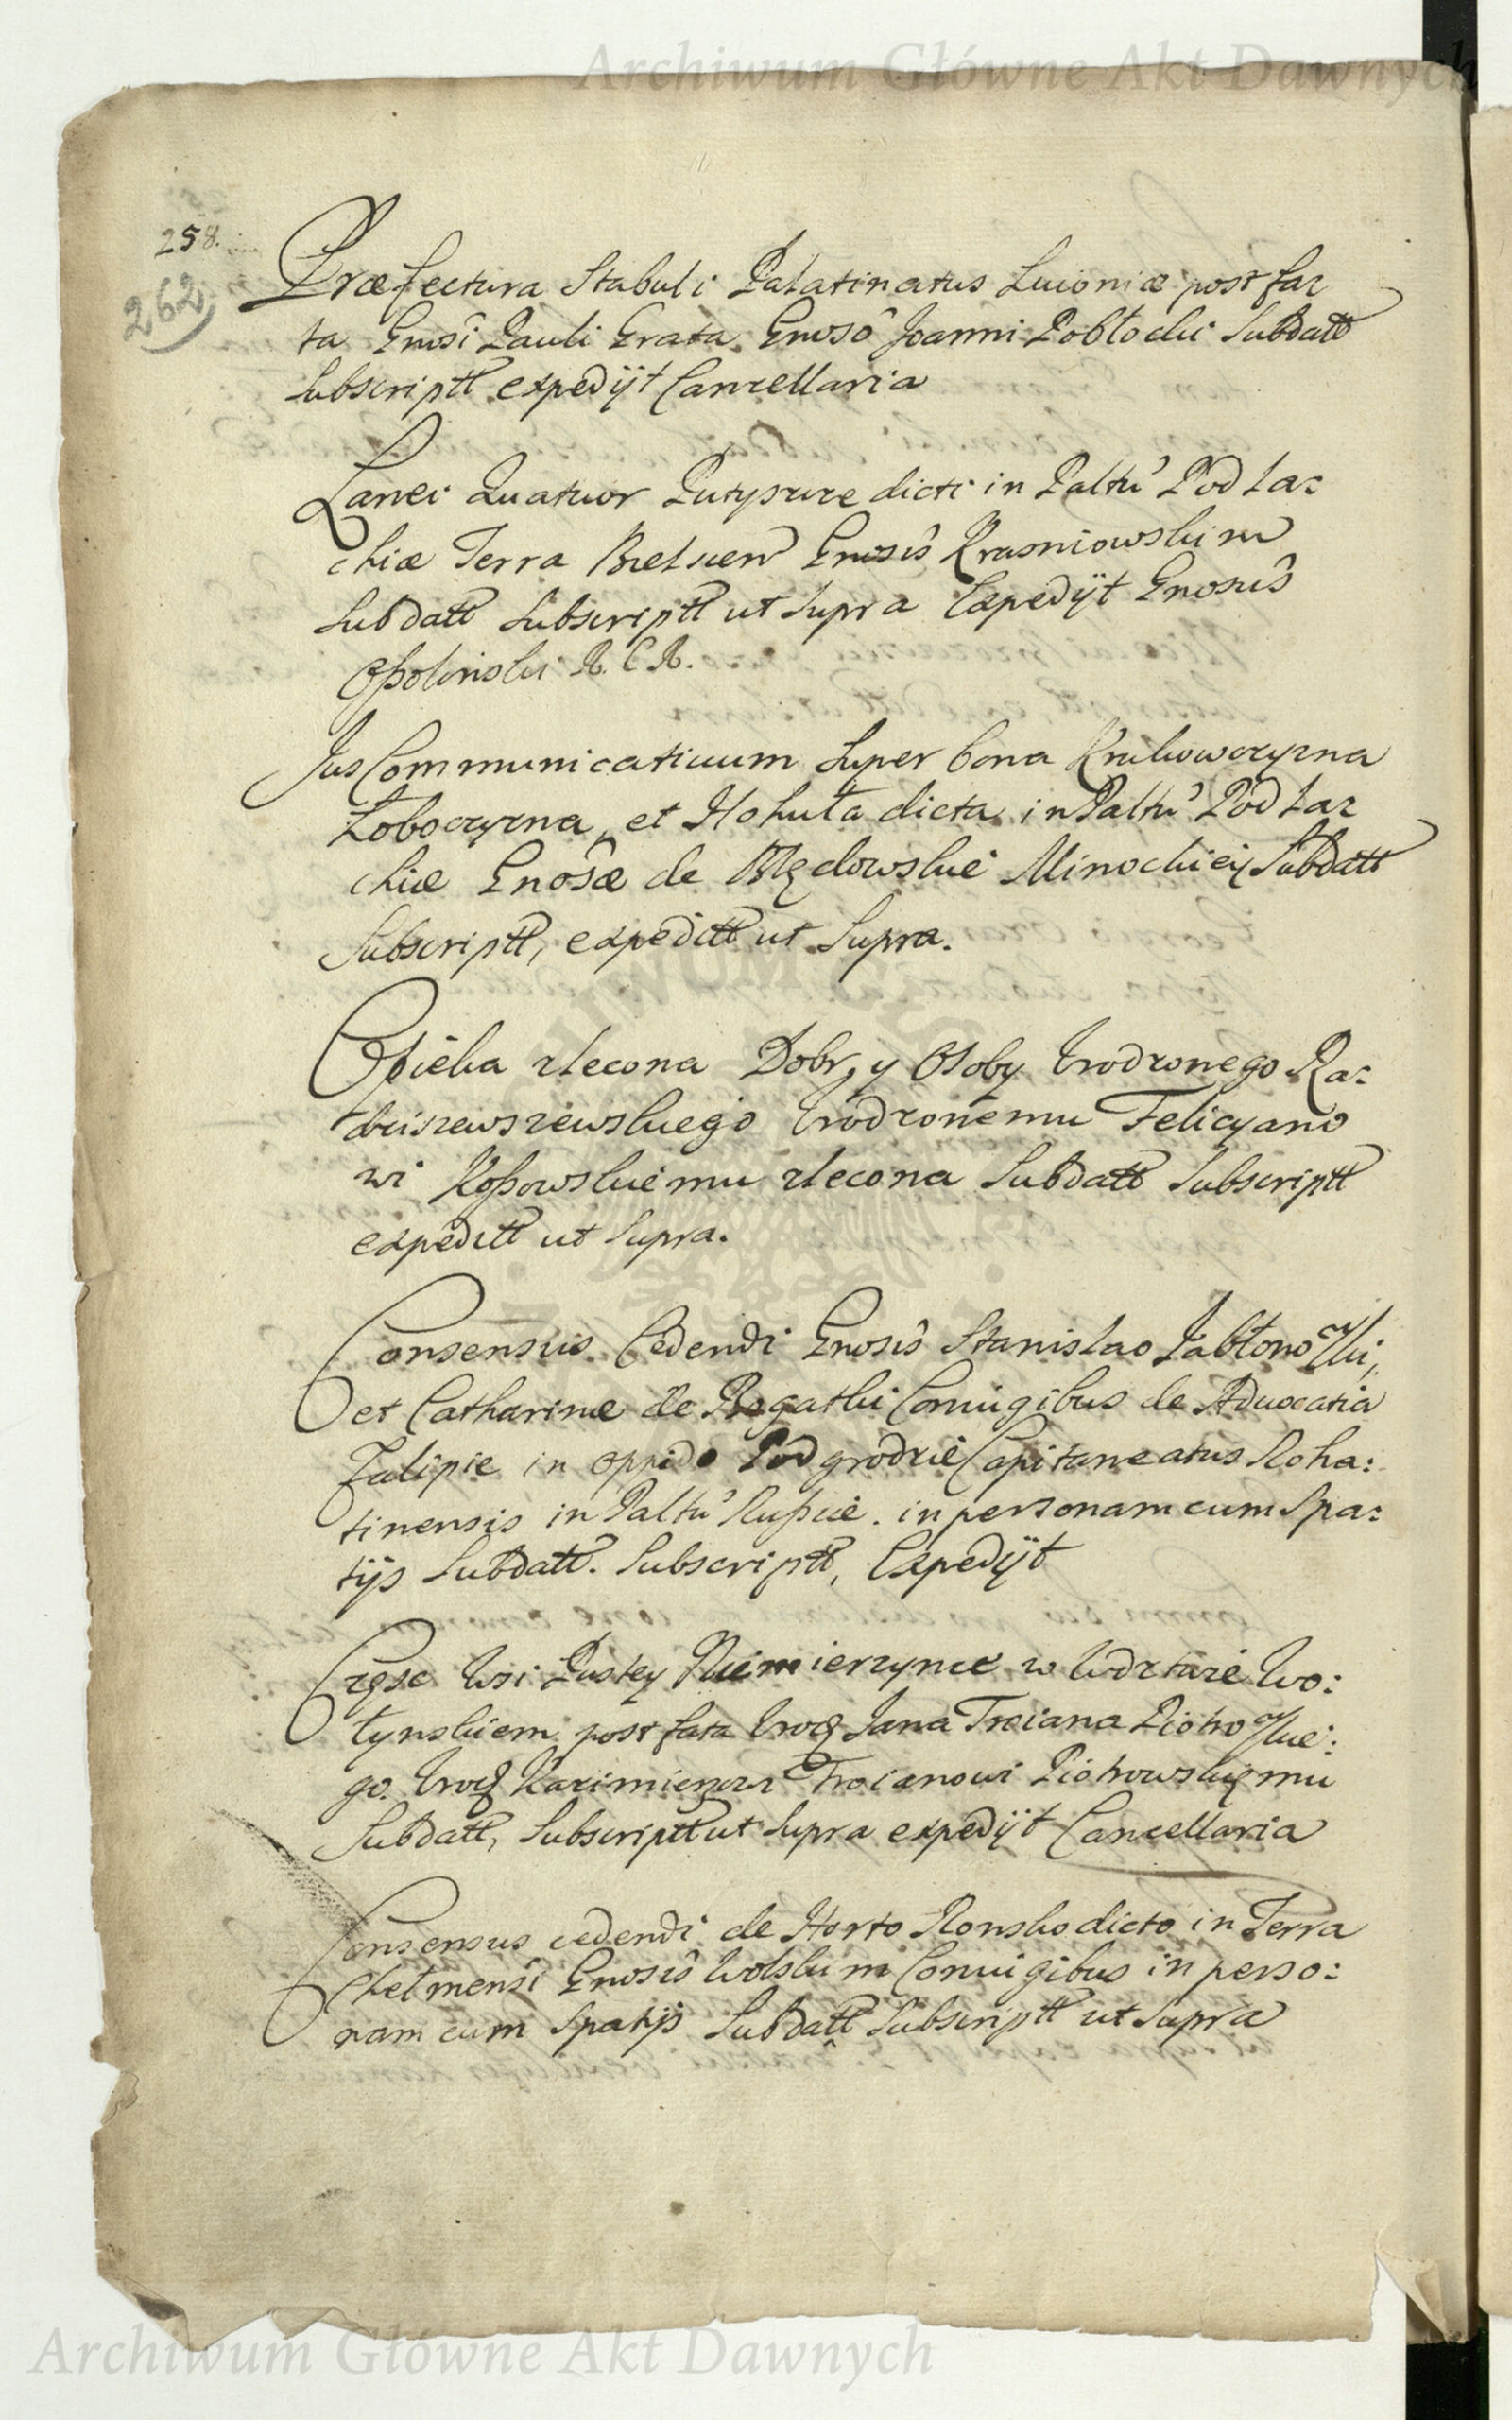 Archiwum Główne Akt Dawnych
258.
262
Præfectura Stabuli Palatinatus Liuoniæ post fa:
ta Gnosi Pauli Grata Gnoso Joanni Pobłocki Subdatt
Subscriptt expedijt Cancellaria
Lanei Quatuor dicti in Palttu Podla:
chiæ Terra Bielscen Gnosis Krasniowskim
Subdatt Subscriptt ut Supra Expedijt Gnosus
Opolinski R. C. R.
Jus Communicatiuum Super bona Krukowczyzna
Łoboczyzna, et Hohuła dicta in Palttu Podla:
chiæ Gnosæ de Subdatt
Subscriptt, expeditt ut Supra.
Opieka zlecona Dobr, y Osoby Urodzonego Ra:
Urodzonemu Felicyano
wi Koßowskiemu zlecona Subdatt Subscriptt
expeditt ut Supra.
Consensus Cedendi Gnosis Stanislao Jabłonowski,
et Catharinæ de Bogatki Coniugibus de Aduocatia
Zalipie in oppido Podgrodzie Capitaneatus Roha:
tinensis in Palttu Rußiæ. in personam cum Spa:
tijs Subdatt. Subscriptt, Expedijt
Częsc Wsi Pustey Niemierzynce w Wdztwie Wo:
łynskiem post fata Urodz Jana Troiana Piotrowskie:
go. Urodz Kazimierzowi Troianowi Piotrowskiemu
Subdatt, Subscriptt ut Supra expedijt Cancellaria
Consensus cedendi de Horto Ronsko dicto in Terra
Chelmensi Gnosis Wolskim Coniugibus in perso:
nam cum Spatijs Subdatt Subscriptt ut Supra
Archiwum Główne Akt Dawnych